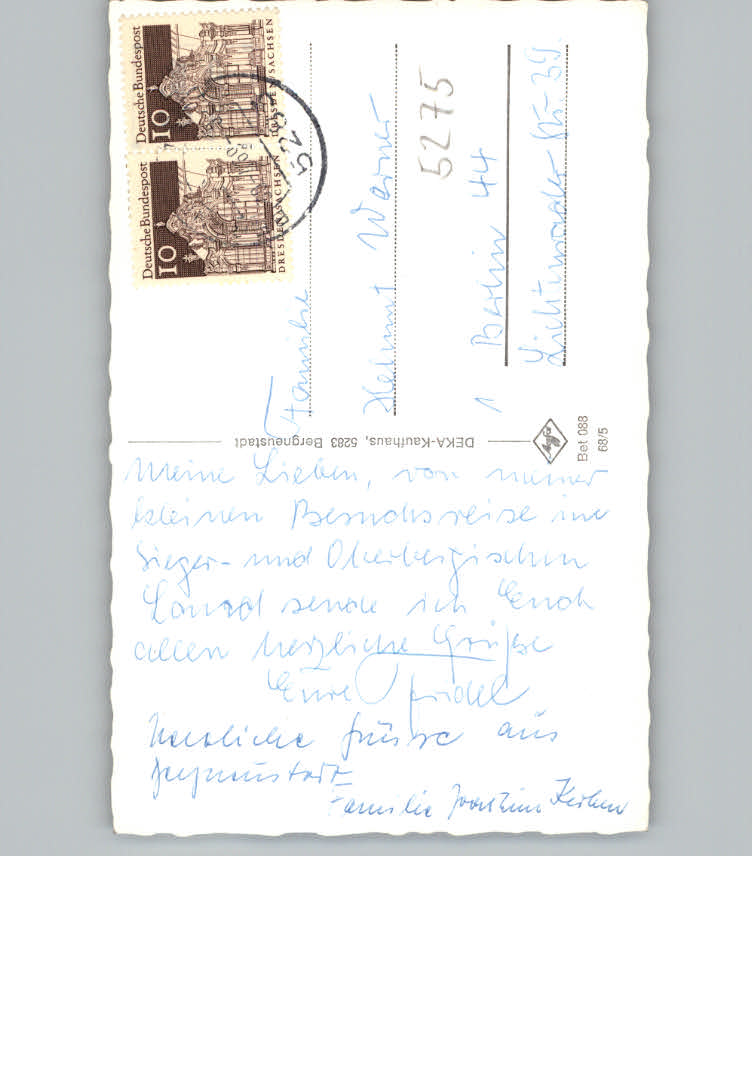 Deutsche Bundespost
10
DRESDEN/SACHSEN
Deutsche Bundespost
10
DRESDEN/SACHSEN
Familie
Helmut Warner
5275
1 Berlin 44
DEKA-Kaufhaus, 5283 Bergneustadt
Agfa
Bet 088
68/5
Meine Lieben, von meiner
kleinen Besuchsreise im
Sieger- und Oberbergischen
Land sende ich Euch
allen herzliche Grüße
Eure
Herzliche Grüsse aus
Familie Joachim